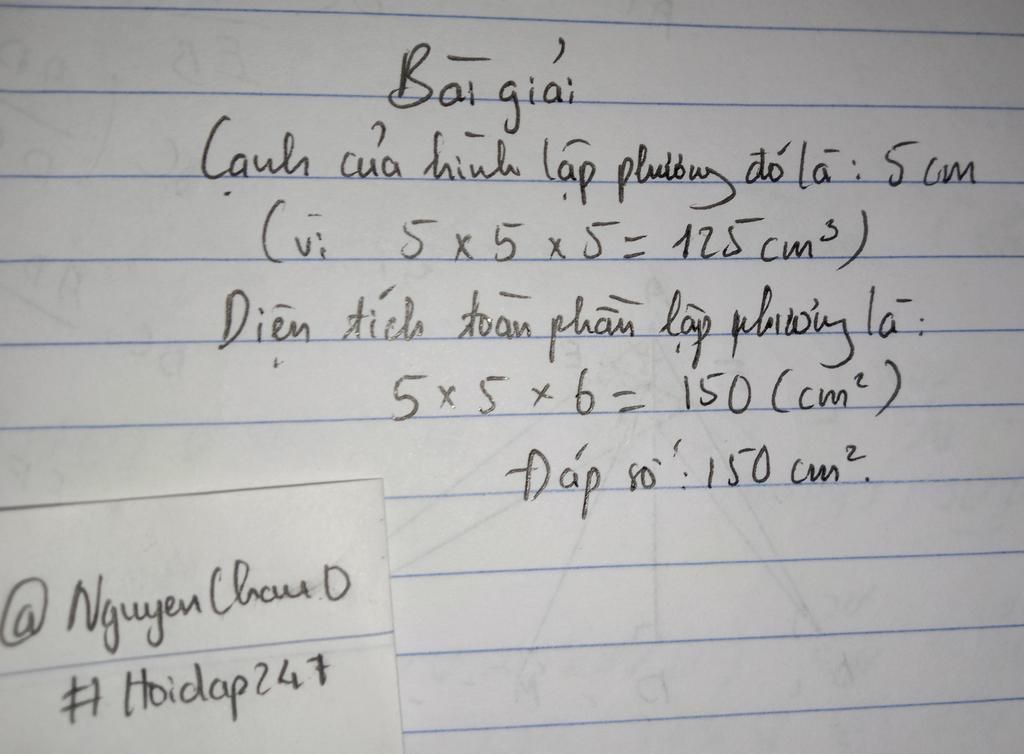 Bài giải
Cạnh của hình lập phương đó là: 5 cm
(vì 5 × 5 × 5 = 125 cm³)
Diện tích toàn phần lập phương là:
5 × 5 × 6 = 150 (cm²)
Đáp số: 150 cm².
@NguyenChau0
#Hoidap247